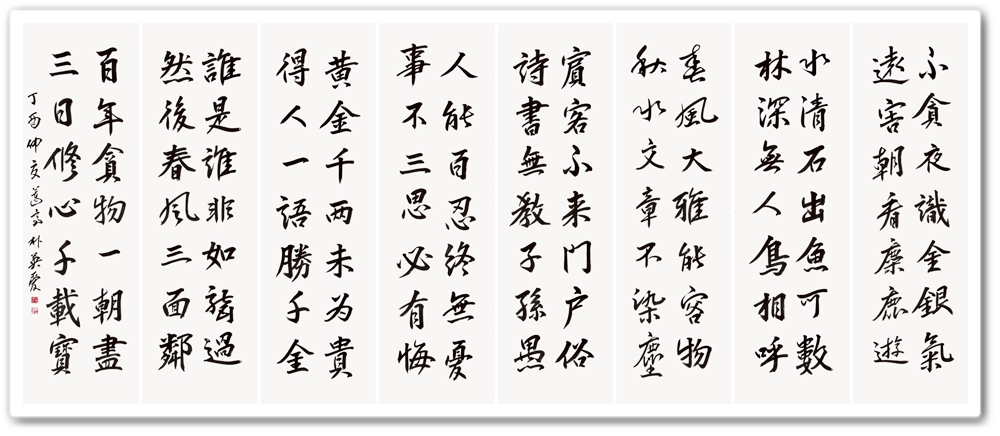 不貪夜識金銀氣
遠害朝看麋鹿遊
水清石出魚可數
林深無人鳥相呼
春風大雅能容物
秋水文章不染塵
賓客不来門户俗
詩書無教子孫愚
人能百忍終無憂
事不三思必有悔
黄金千两未为貴
得人一語勝千金
誰是誰非如話過
然後春风三面鄰
百年貪物一朝盡
三日修心千載寶
丁酉仲夏 朴英愛